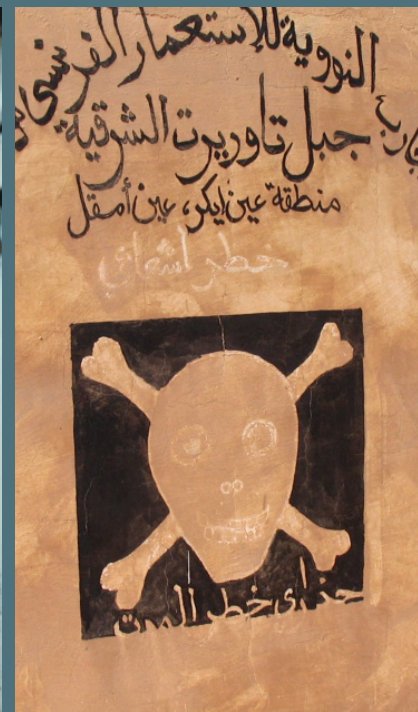 النووية للإستعمار الفرنسي
جبل تاوريرت الشرقية
منطقة عين إيكر، عين أمقل
خطر اشعاعي
حذاري خطر الموت